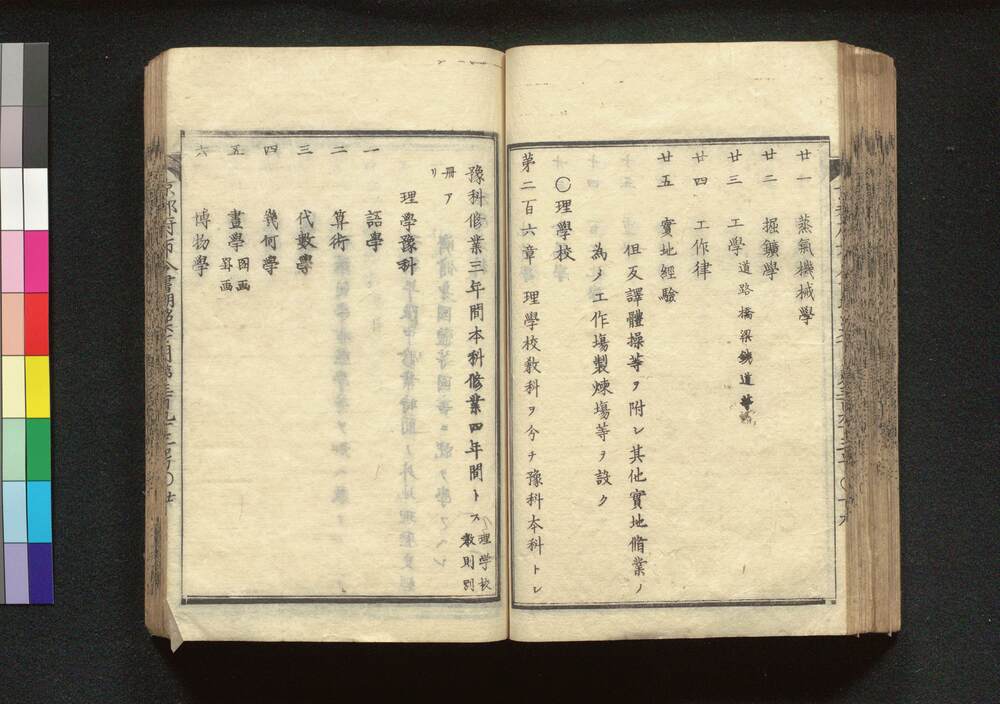 廿一　蒸氣機械學
廿二　掘鑛學
廿三　工學 道路橋梁鐵道等
廿四　工作律
廿五　實地經驗
但反譯體操等ヲ附シ其他實地脩業ノ
為メ工作塲製煉塲等ヲ設ク
〇理學校
第二百六章 理學校敎科ヲ分チ豫科本科トシ
豫科修業三年間本科修業四年間トス 理學校敎則別
冊アリ
理學豫科
一　語學
二　算術
三　代數學
四　幾何學
五　畫學 図画 罫画
六　博物學